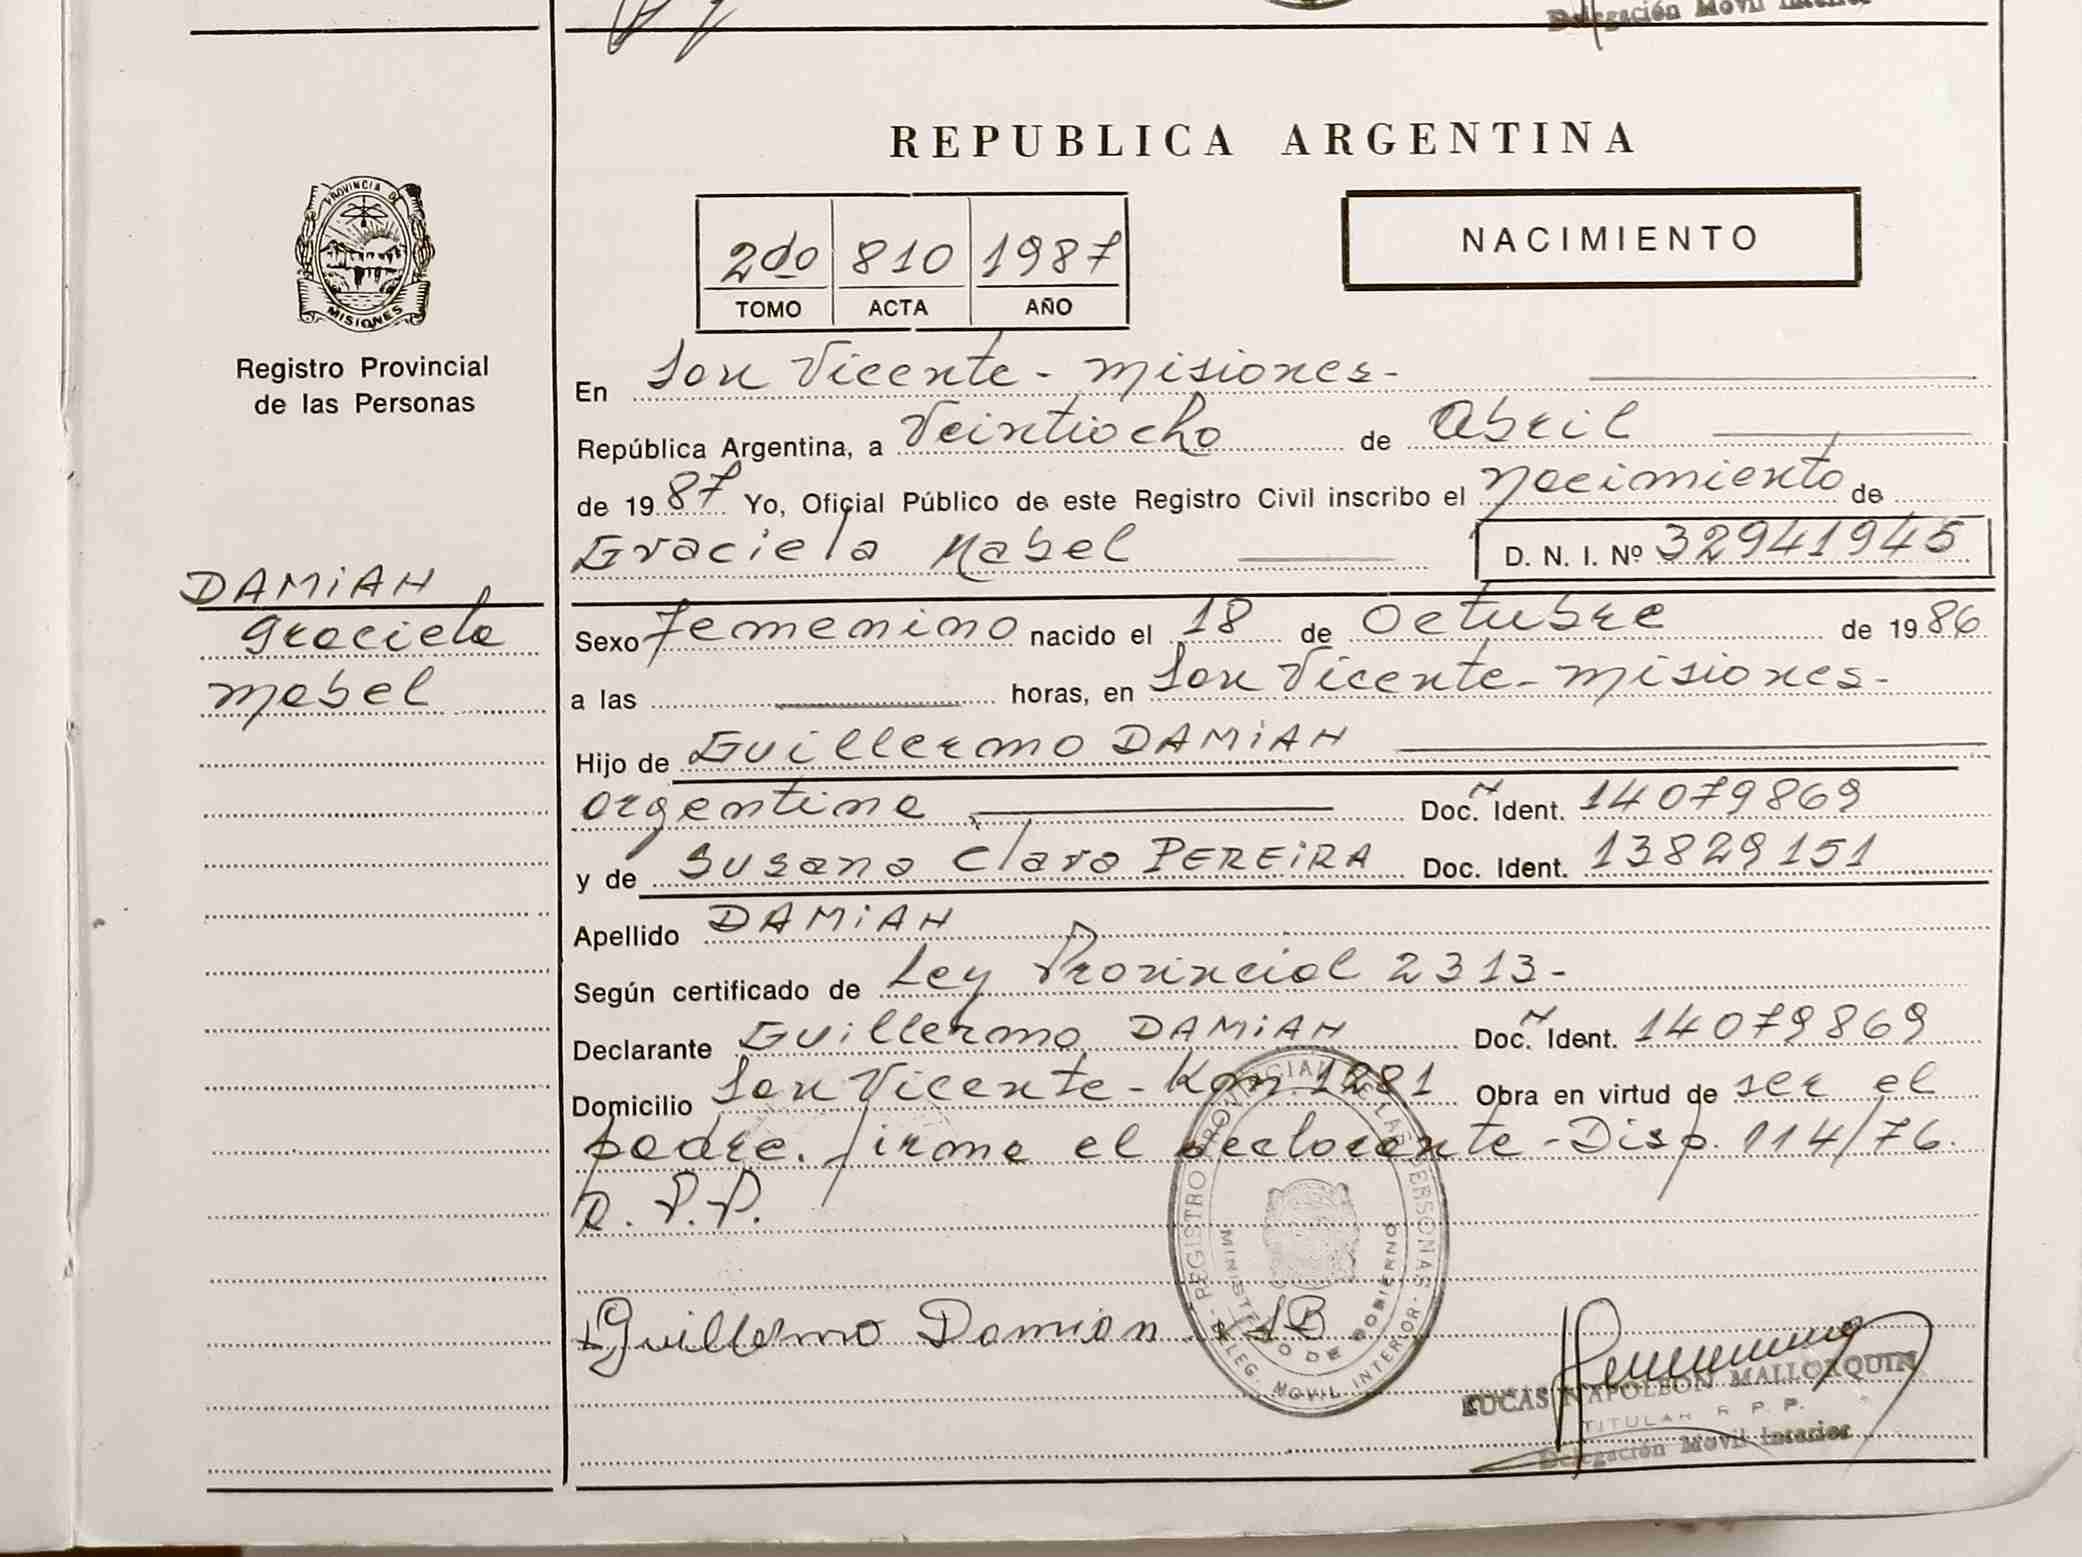 Delegación Movil Interior
REPUBLICA ARGENTINA
PROVINCIA DE
MISIONES
Registro Provincial
de las Personas
2do 810 1987
TOMO ACTA AÑO
NACIMIENTO
En San Vicente - Misiones -
República Argentina, a Veintiocho de Abril
de 1987 Yo, Oficial Público de este Registro Civil inscribo el nacimiento de
Graciela Mabel D. N. I. Nº 32941945
DAMIAN
Graciela
Mabel
Sexo Femenino nacido el 18 de Octubre de 1986
a las horas, en San Vicente - Misiones -
Hijo de Guillermo DAMIAN
argentina Doc. N Ident. 14079869
y de Susana Clara PEREIRA Doc. Ident. 13829151
Apellido DAMIAN
Según certificado de Ley Provincial 2313 -
Declarante Guillermo DAMIAN Doc. N Ident. 14079869
Domicilio San Vicente - Km. 1281 Obra en virtud de ser el
padre. firma el declarante - Disp. 114/76.
R. P. P.
Guillermo Damian
REGISTRO PROVINCIAL DE LAS PERSONAS
MINISTERIO DE GOBIERNO
DELEG. MOVIL INTERIOR
LUCAS NAPOLEON MALLORQUIN
TITULAR R. P. P.
Delegación Movil Interior